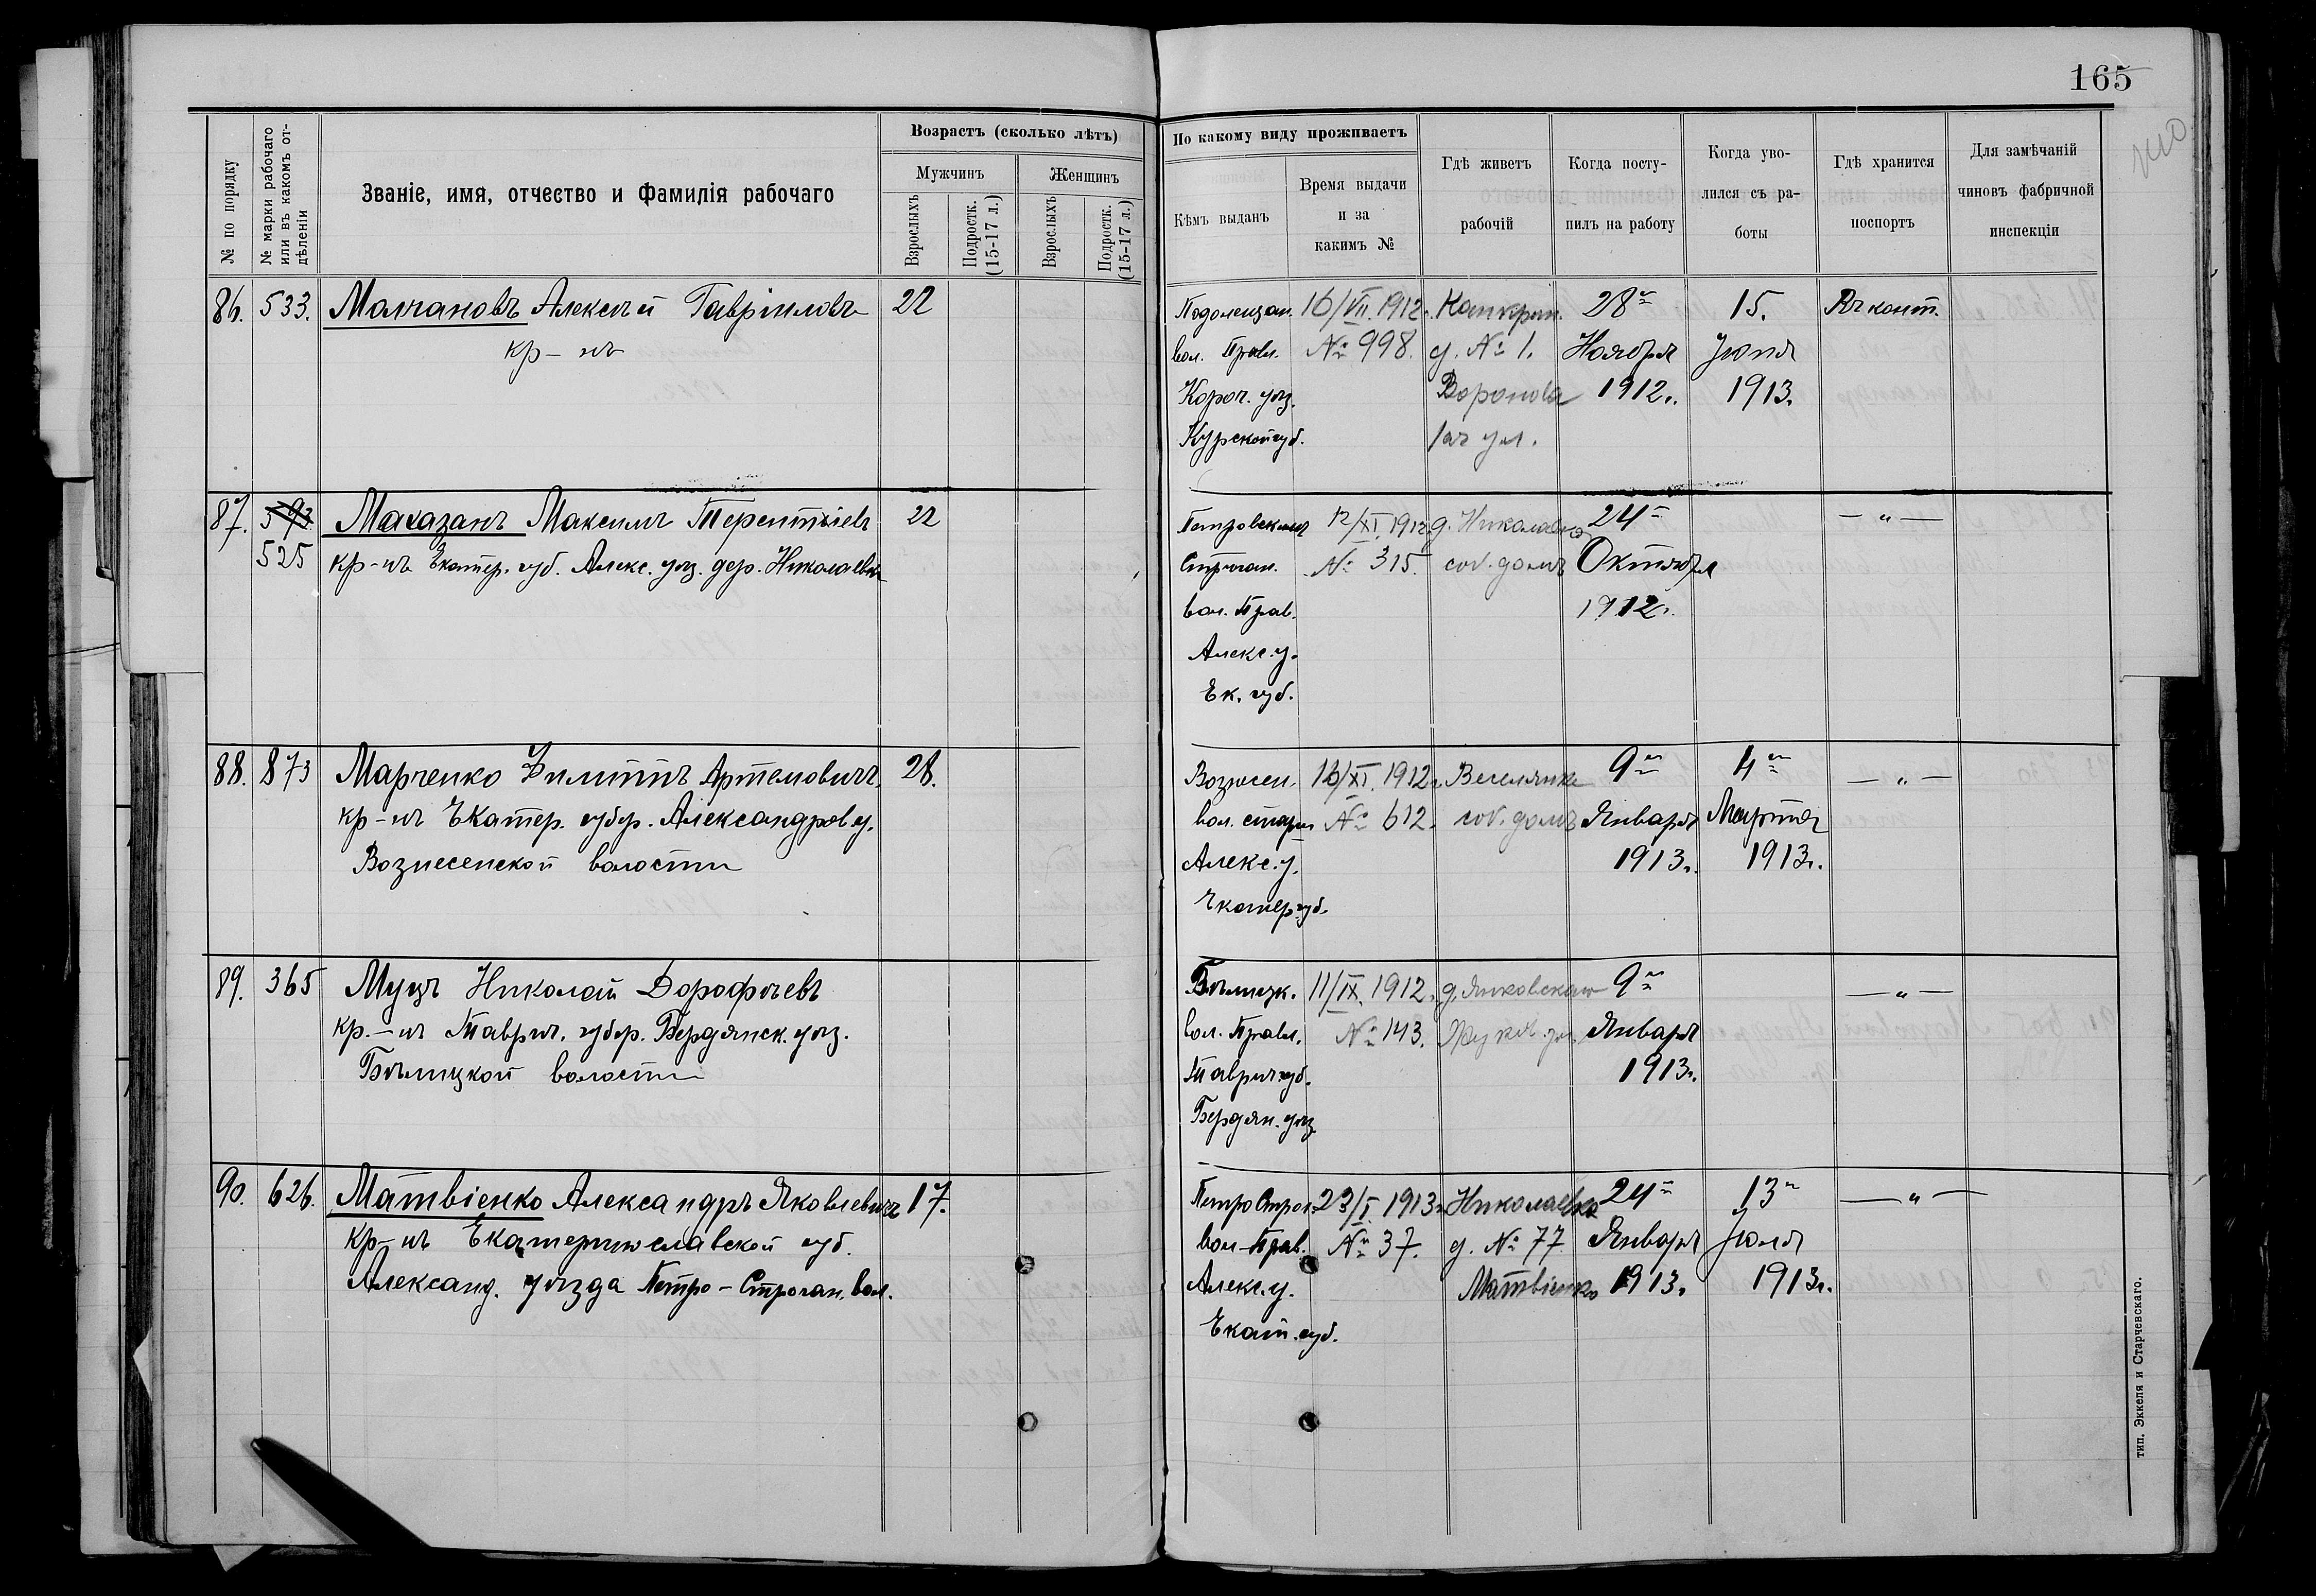 165
№ по порядку
№ марки рабочаго или въ какомъ отдѣленіи
Званіе, имя, отчество и фамилія рабочаго
Возрастъ (сколько лѣтъ)
Мужчинъ
Женщинъ
Взрослыхъ
Подростк. (15-17 л.)
Взрослыхъ
Подростк. (15-17 л.)
По какому виду проживаетъ
Кѣмъ выданъ
Время выдачи
и за
какимъ №
Гдѣ живетъ
рабочій
Когда посту-
пилъ на работу
Когда уво-
лился съ ра-
боты
Гдѣ хранится
поспортъ
Для замѣчаній
чиновъ фабричной
инспекціи
86. 533. Малчановъ Алексѣй Гавріиловъ 22
кр-нъ
16/VII. 1912. 28го 15. Въ конт.
вол. Правл. № 998. д. № 1. Ноября Іюня
Короч. уѣз. Воронова 1912г. 1913.
Курской губ. ул.
87. 593 Махазанъ Максимъ Терентьіевъ 22
525 кр-нъ Екатер. губ. Алекс. уѣз. дер. Николаевки
Петровскимъ 12/XI. 1912 д. Николаевка 24го — " —
Строган. № 315. соб. домъ Октября
вол. Прав. 1912г.
Алекс. у.
Ек. губ.
88. 873 Марченко Филиппъ Артемовичъ. 28.
кр-нъ Екатер. губер. Александров у.
Вознесенской волости
Вознесен. 16/XI. 1912г. Веселянка 9го 4го — " —
вол. старш № 612. соб. домъ Января Марта
Алекс. у. 1913г. 1913г.
Екатер. губ.
89. 365 Муцъ Николай Дорофѣевъ
кр-нъ Таврич. губер. Бердянск. уѣз.
Бѣлицкой волости
Бѣлицк. 11/IX. 1912. д. Янковскаго 9го — " —
вол. Правл. № 143. Января
Таврич губ. 1913г.
Бердян. уѣз.
90. 626. Матвіенко Александръ Яковлевичъ 17.
кр-нъ Екатеринославской губ.
Александ. уѣзда Петро-Строган. вол.
Петро Строг. 23/I. 1913г. Николаевка 24го 13го — " —
вол-Прав. № 37. д. № 77 Января Іюля
Алекс. у. Матвіенко 1913г. 1913г.
Екат. губ.
тип. Эккеля и Старчевскаго.